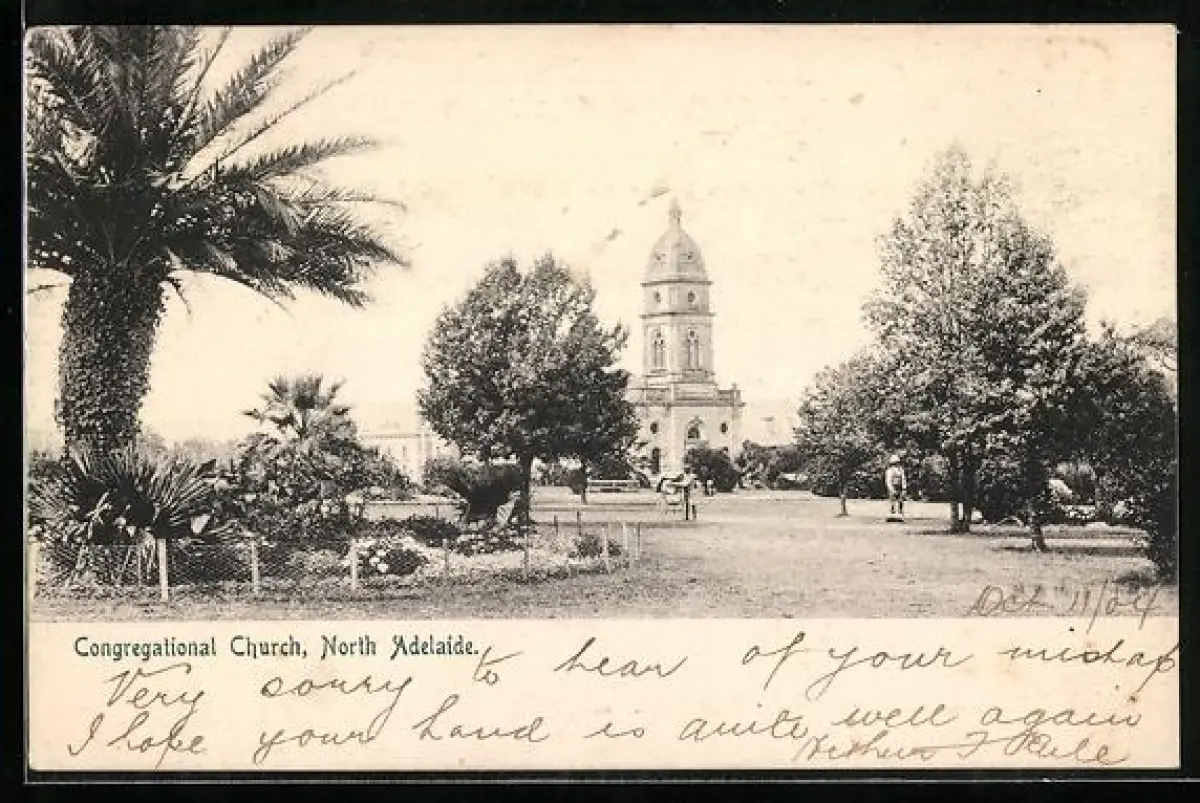 Oct 11/04
Congregational Church, North Adelaide.
Very sorry to hear of your mishap
I hope your hand is quite well again
Arthur F